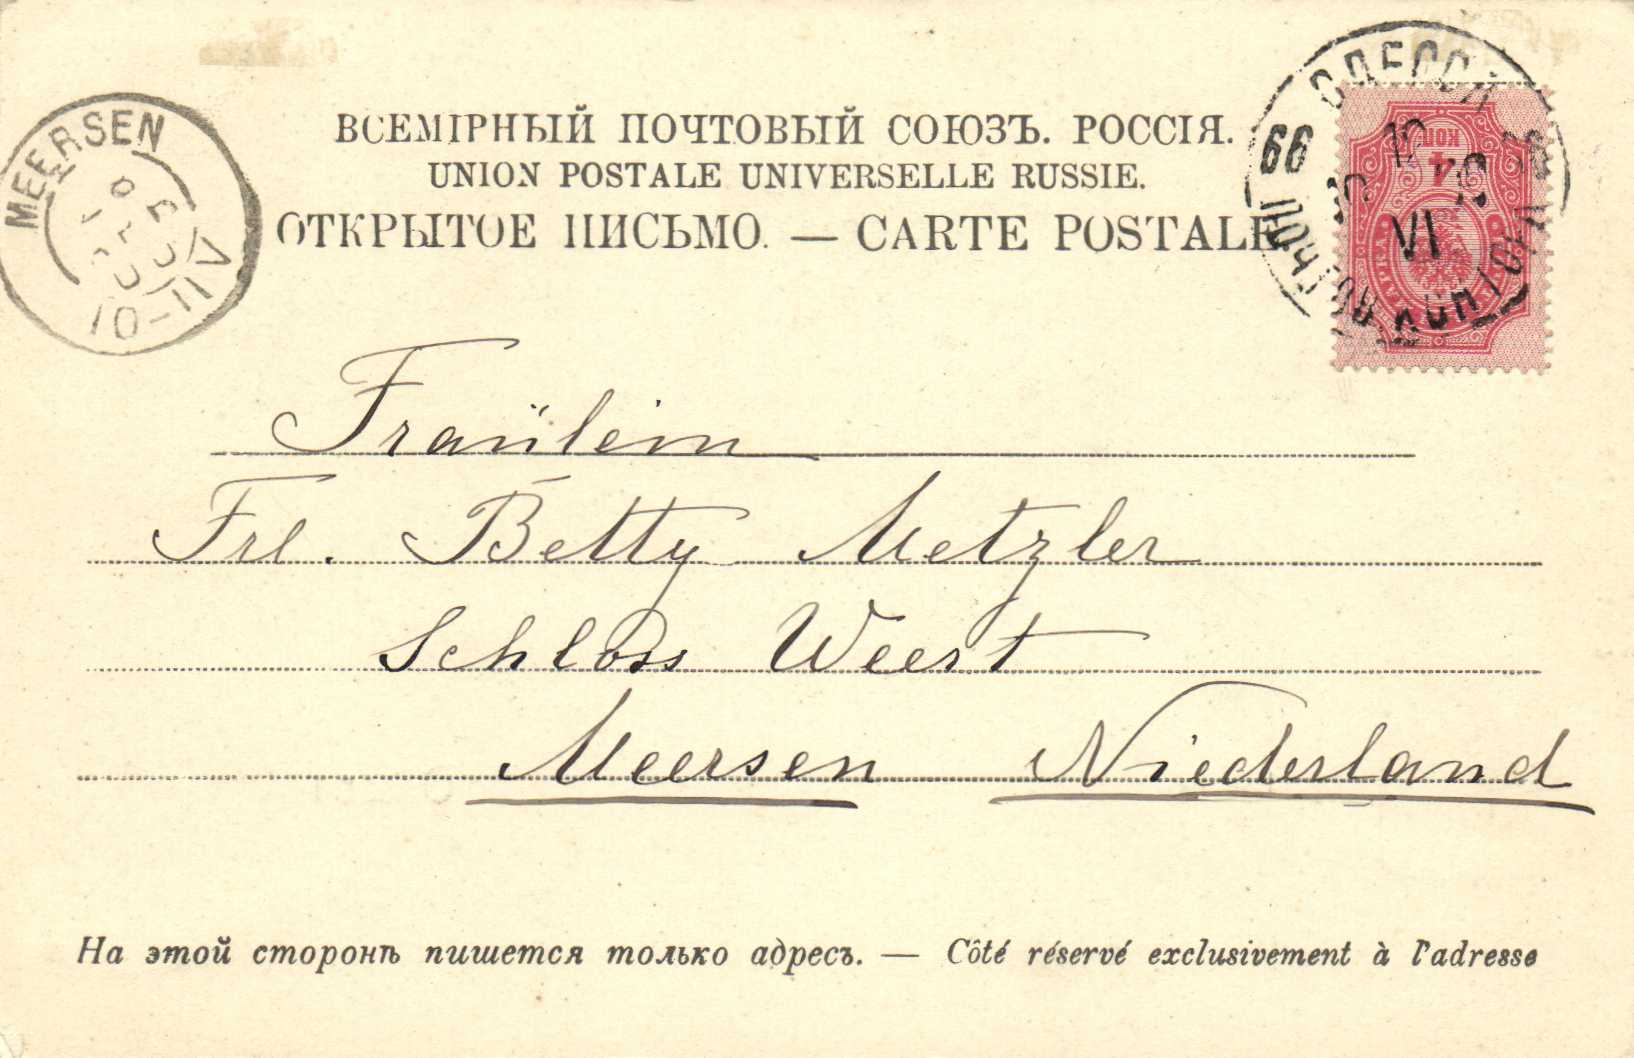 ВСЕМІРНЫЙ ПОЧТОВЫЙ СОЮЗЪ. РОССІЯ.
UNION POSTALE UNIVERSELLE RUSSIE.
ОТКРЫТОЕ ПИСЬМО. — CARTE POSTALE
MEERSEN
ОДЕССА
99
12
VI
4
КОП
Fraülein
Frl. Betty Metzler
Schloss Weert
Meersen Niederland
На этой сторонѣ пишется только адресъ. — Côté réservé exclusivement à l'adresse